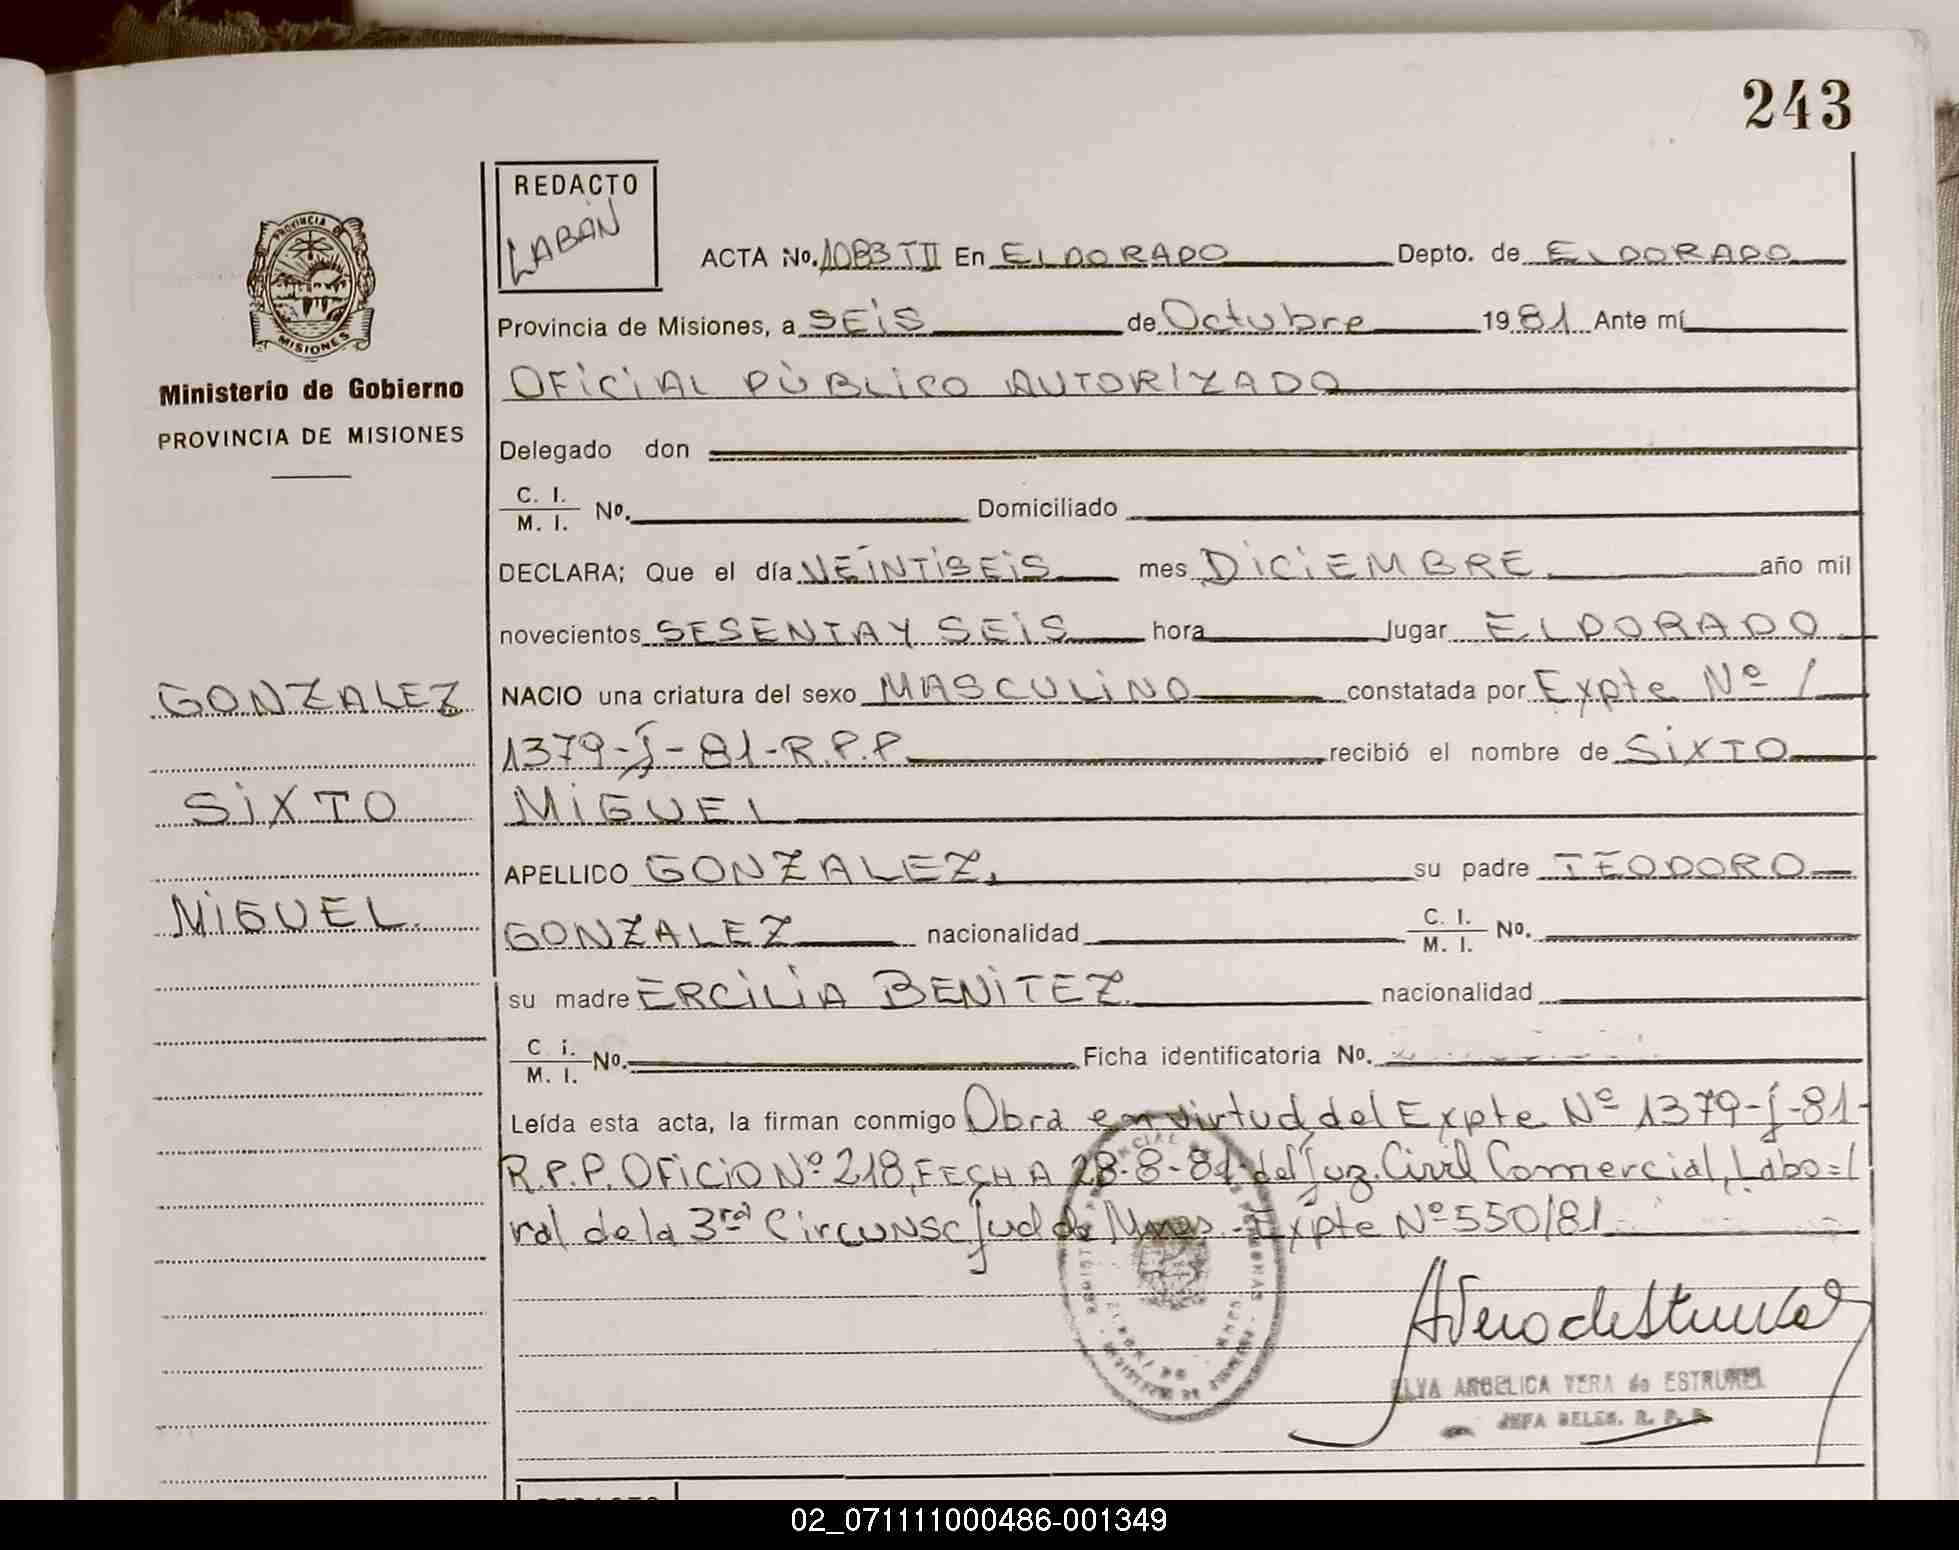 243
REDACTO
LABAN
PROVINCIA DE
MISIONES
Ministerio de Gobierno
PROVINCIA DE MISIONES
GONZALEZ
SIXTO
MIGUEL.
ACTA No. 1083 TII En ELDORADO Depto. de ELDORADO
Provincia de Misiones, a SEIS de Octubre 1981 Ante mí
OFICIAL PÚBLICO AUTORIZADO
Delegado don
C. I. / M. I. No. Domiciliado
DECLARA; Que el día VEINTISEIS mes DICIEMBRE año mil
novecientos SESENTA Y SEIS hora lugar ELDORADO
NACIO una criatura del sexo MASCULINO constatada por Expte Nº /
1379-J-81-R.P.P. recibió el nombre de SIXTO
MIGUEL
APELLIDO GONZALEZ. su padre TEODORO
GONZALEZ nacionalidad C. I. / M. I. No.
su madre ERCILIA BENITEZ nacionalidad
C. i. / M. I. No. Ficha identificatoria No.
Leída esta acta, la firman conmigo Obra en virtud del Expte Nº 1379-J-81-
R.P.P. OFICIO Nº 218, FECHA 28-8-81 del Juz. Civil Comercial, Labo=/
ral de la 3ra Circunsc Jud de Mnes. - Expte Nº 550/81
ELVA ANGELICA VERA de ESTRUBEL
JEFA DELEG. R. P. P.
REDACTO
02_071111000486-001349